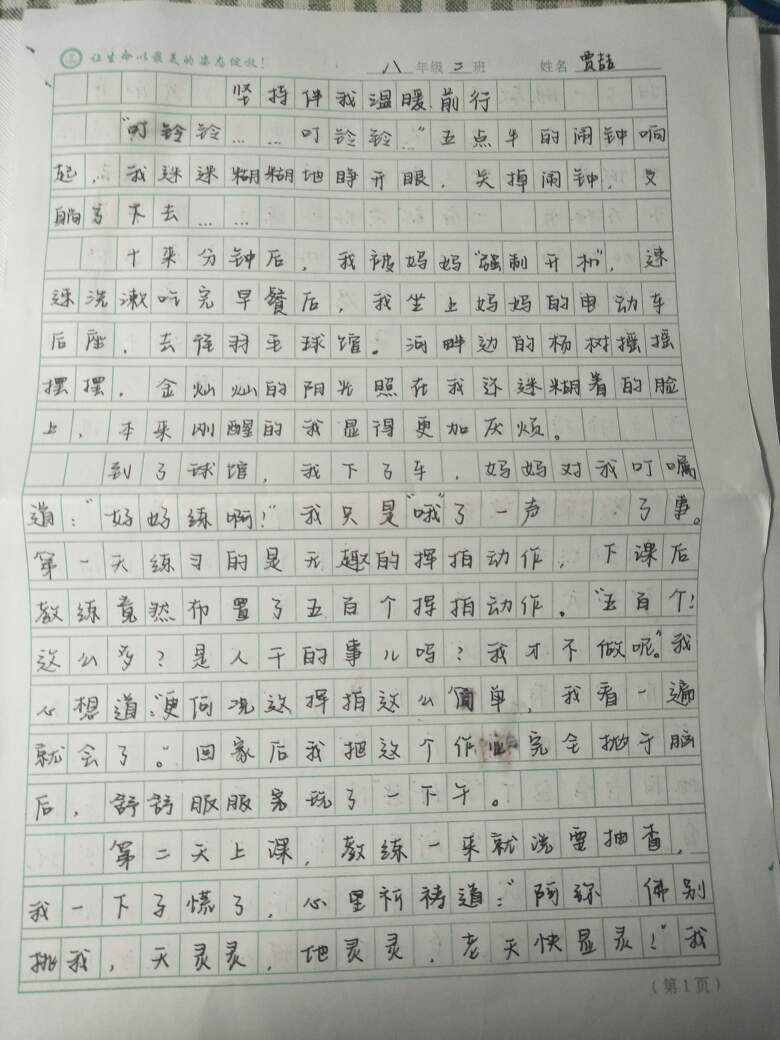 让生命以最美的姿态绽放！ 八年级二班 姓名 贾喆
坚持伴我温暖前行
“叮铃铃……叮铃铃…”五点半的闹钟响
起，我迷迷糊糊地睁开眼，关掉闹钟，又
躺了下去……
十来分钟后，我被妈妈“强制开机”，迷
迷洗漱吃完早餐后，我坐上妈妈的电动车
后座，去往羽毛球馆。河畔边的杨树摇摇
摆摆，金灿灿的阳光照在我还迷糊着的脸
上，本来刚醒的我显得更加灰烦。
到了球馆，我下了车，妈妈对我叮嘱
道：“好好练啊！”我只是“哦”了一声 了事。
第一天练习的是无趣的挥拍动作，下课后
教练竟然布置了五百个挥拍动作。“五百个！
这么多？是人干的事儿吗？我才不做呢。”我
心想道：“更何况这挥拍这么简单，我看一遍
就会了。”回家后我把这个作业完全抛于脑
后，舒舒服服完玩了一下午。
第二天上课，教练一来就说要抽查，
我一下子慌了，心里祈祷道：“阿弥 佛别
挑我，天灵灵，地灵灵，老天快显灵！”我
（第1页）